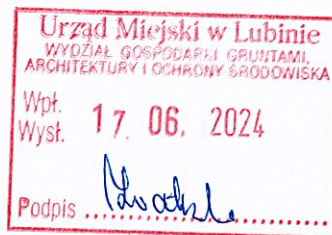 Urząd Miejski w Lubinie
WYDZIAŁ GOSPODARKI GRUNTAMI,
ARCHITEKTURY I OCHRONY ŚRODOWISKA
Wpł.
Wysł. 17. 06. 2024
Podpis ..................